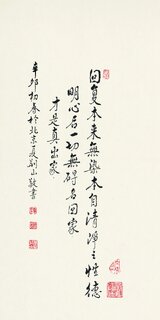 回复本来無染本自清淨之性德
明心后一切無碍名回家
才是真出家
辛卯初春於北京夏荆山敬書